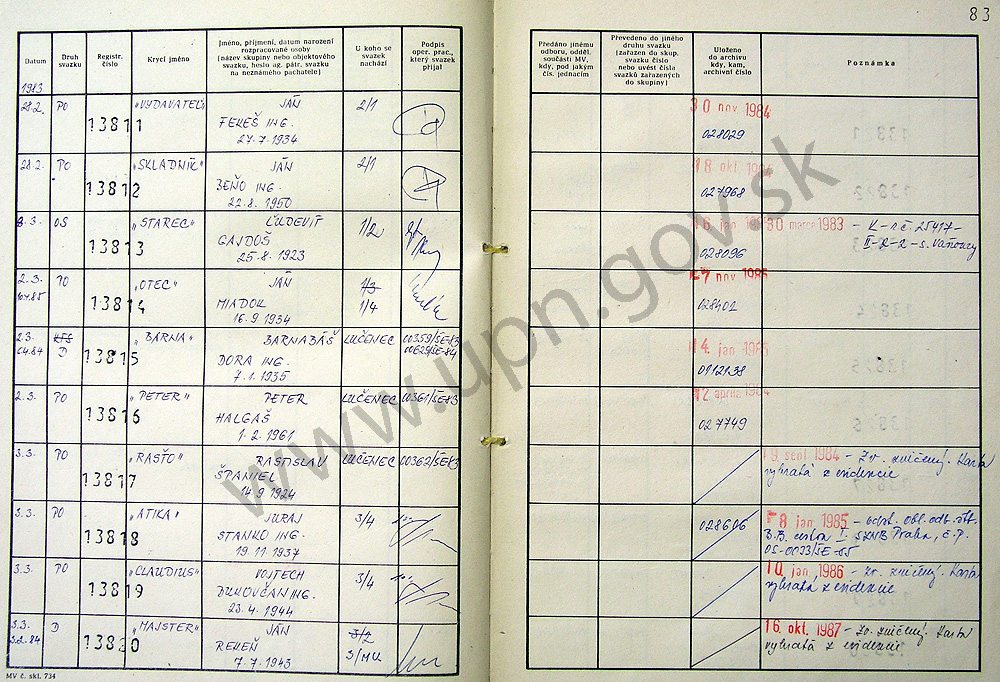 83
Datum
Druh svazku
Registr. číslo
Krycí jméno
Jméno, příjmení, datum narození
rozpracované osoby
(název skupiny nebo objektového
svazku, heslo ag. pátr. svazku
na neznámého pachatele)
U koho se svazek nachází
Podpis oper. prac., který svazek přijal
Předáno jinému odboru, odděl. součásti MV, kdy, pod jakým čís. jednacím
Převedeno do jiného druhu svazku (zařazen do skup. svazku číslo nebo uvést čísla svazků zařazených do skupiny)
Uloženo do archivu kdy, kam, archivní číslo
Poznámka
1983
28.2. PO 13811 "VYDAVATEĽ" JÁN 2/1
FEKEŠ ING.
27.7.1934
30 nov 1984
028029
28.2. PO 13812 "SKLADNÍK" JÁN 2/1
BEŇO ING.
22.8.1950
18 okt
027968
2.3. OS 13813 "STAREC" ĽUDEVÍT 1/2
GAJDOŠ
25.8.1923
16. jan
028096
30 marca 1983 - K-r č. 25417-
2.3. PO 13814 "OTEC" JÁN 1/3
MIADOK 1/4
16.9.1934
7 nov 1985
028401
2.3. KFS 13815 "BARNA" BARNABÁŠ LUČENEC 00359/SE-83
D DORA ING. 00625/SE-84
7.1.1935
14. jan 1985
0112138
2.3. PO 13816 "PETER" PETER LUČENEC 00361/SE-83
HALGAŠ
1.2.1961
12 apríla 1984
027749
3.3. PO 13817 "RASŤO" RASTISLAV LUČENEC 00362/SE-83
ŠPANIEL
14.9.1924
19. sept 1984 - Zv. zničený. Karta
vybratá z evidencie
3.3. PO 13818 "ATIKA" JURAJ 3/4
STANKO ING.
19.11.1937
028606
8 jan 1985 - odst. obl. odb.
B.B. cestou I. SZNB Praha, č.p.
OS-0033/SE-85
3.3. PO 13819 "CLAUDIUS" VOJTECH 3/4
DUKOVČAN ING.
23.4.1944
10. jan 1986 - zv. zničený. Karta
vybratá z evidencie
3.3. D 13820 "MAJSTER" JÁN 3/2
REKEŇ 3/MU
7.7.1943
16. okt. 1987 - Zv. zničený. Karta
vybratá z evidencie
MV č. skl. 734
www.upn.gov.sk